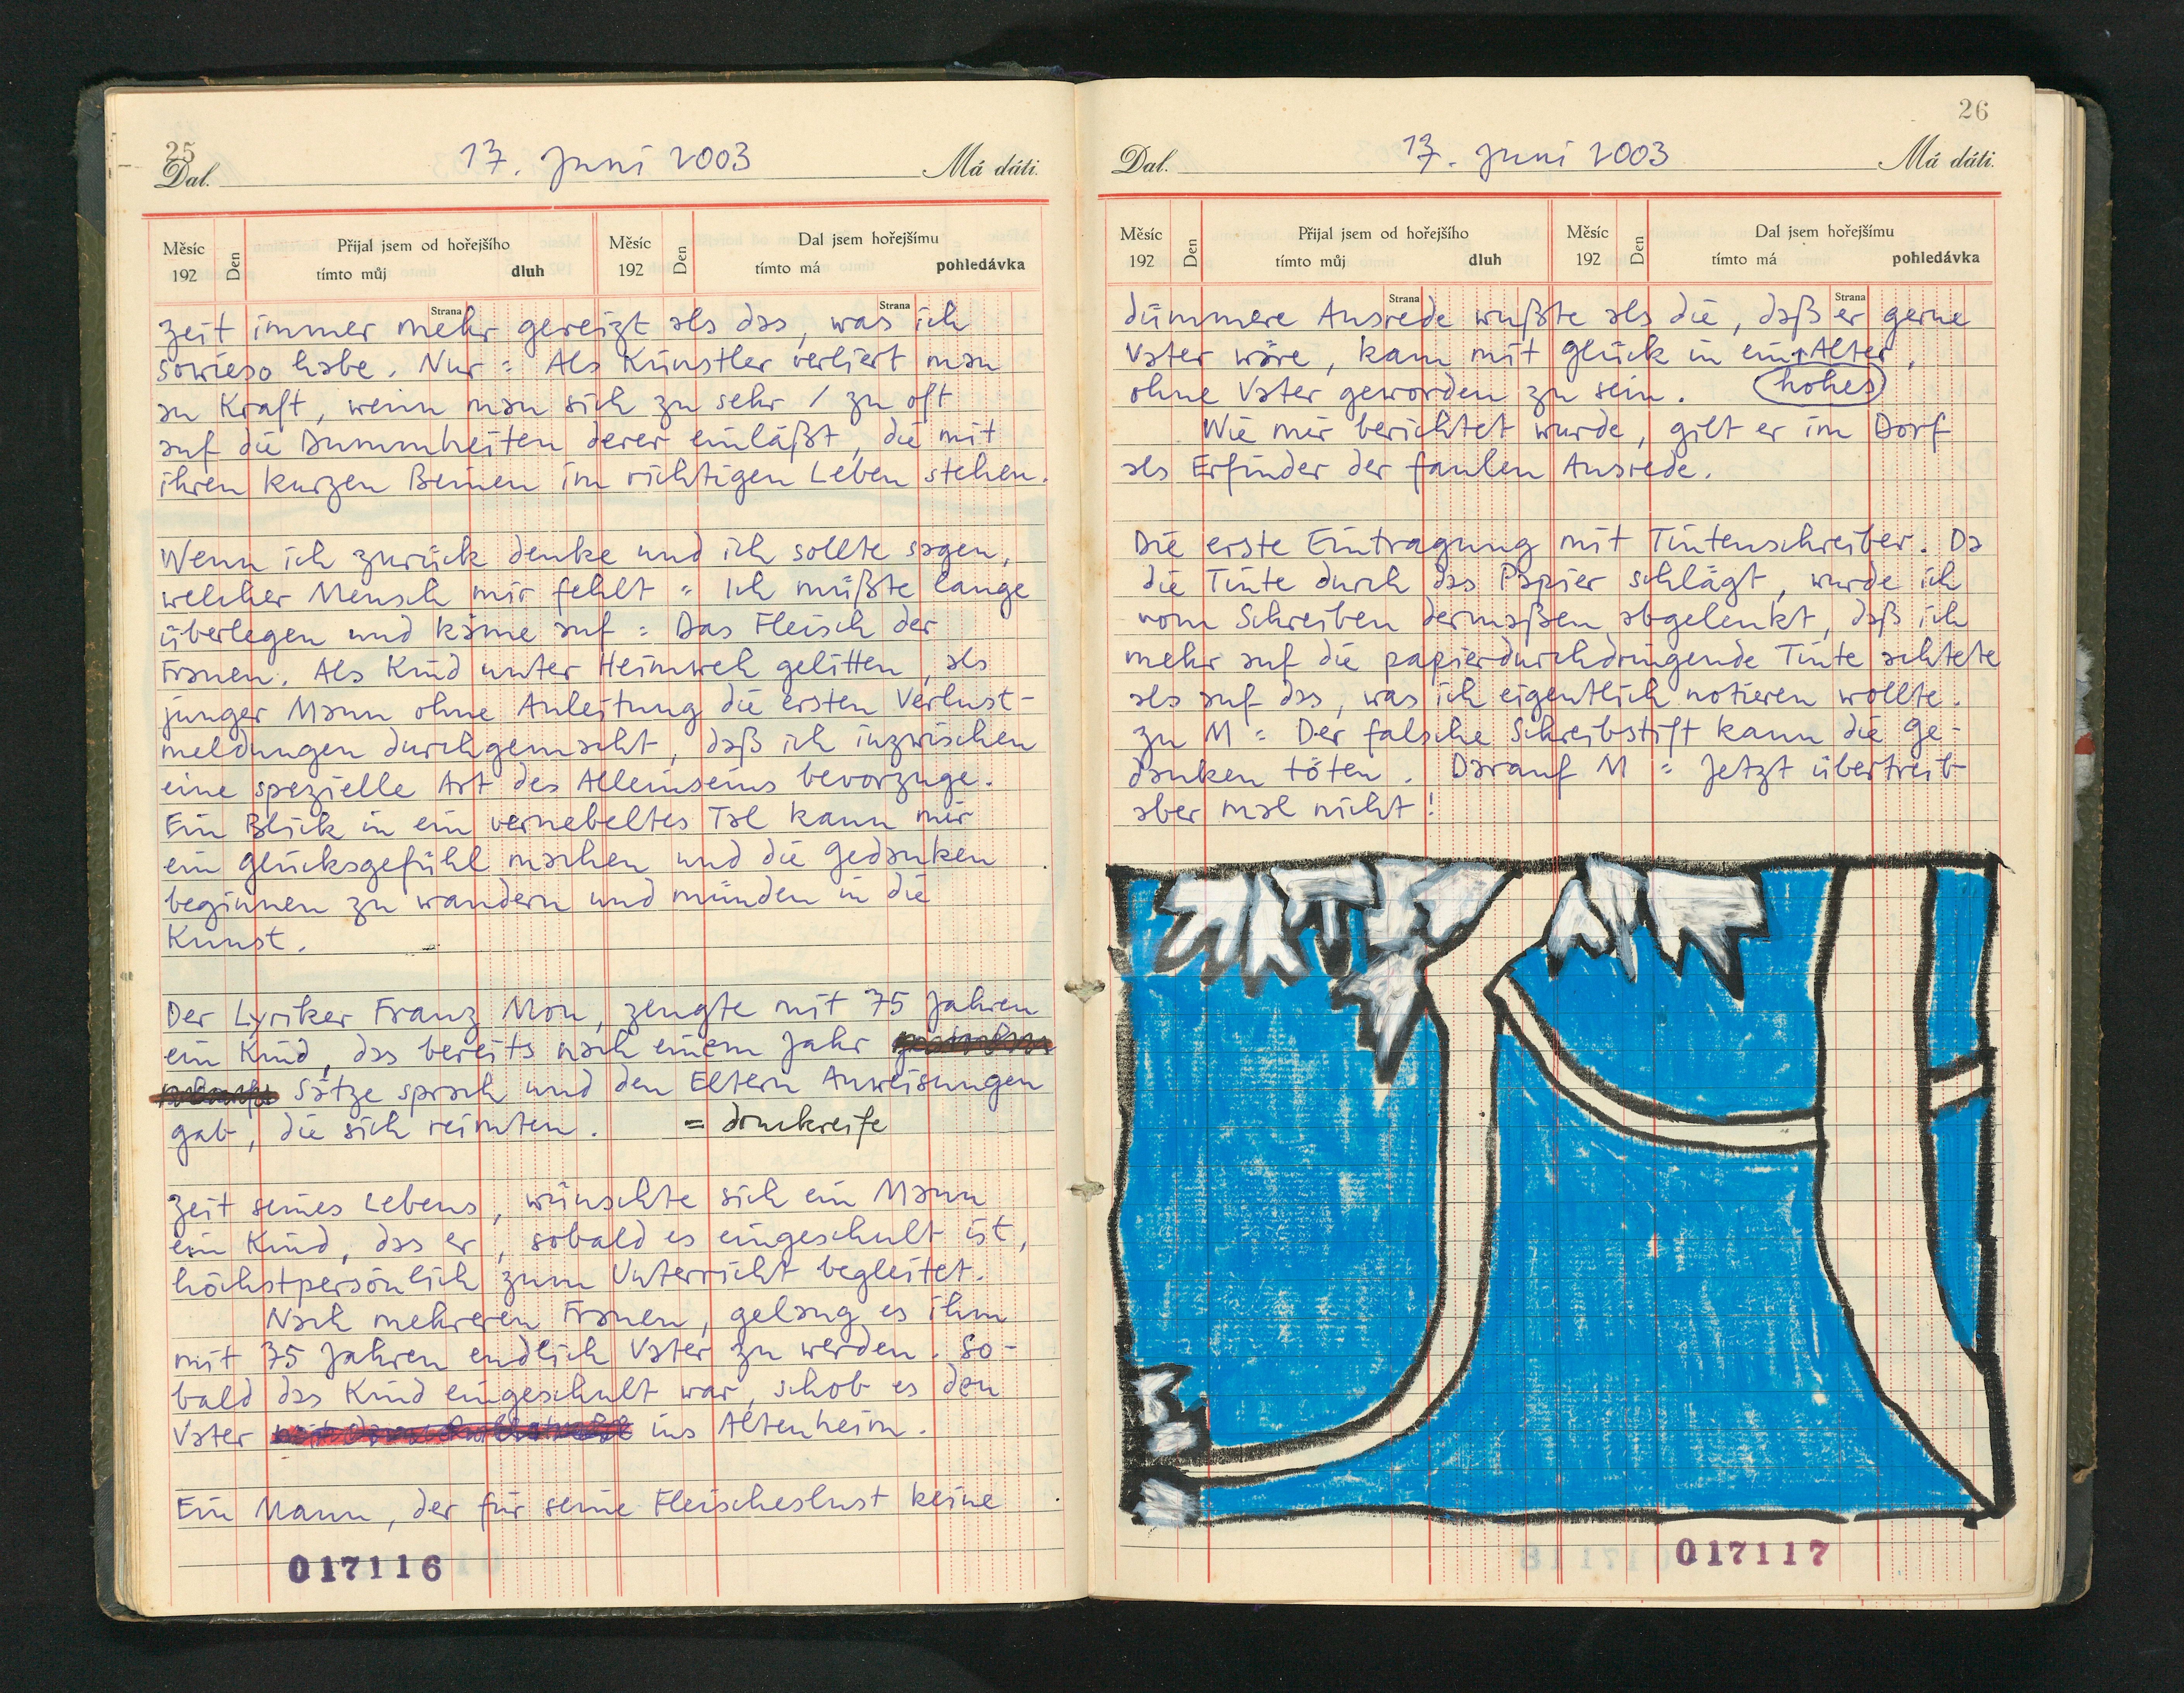 25
17. Juni 2003
Dal. Má dáti.
Měsíc Den Přijal jsem od hořejšího Měsíc Den Dal jsem hořejšímu
192 tímto můj dluh 192 tímto má pohledávka
Strana Strana
Zeit immer mehr gereizt als das, was ich
sowieso habe. Nur = Als Künstler verliert man
an Kraft, wenn man sich zu sehr / zu oft
auf die Dummheiten derer einläßt, die mit
ihren kurzen Beinen im richtigen Leben stehen.
Wenn ich zurück denke und ich sollte sagen,
welcher Mensch mir fehlt = Ich müßte lange
überlegen und käme auf = Das Fleisch der
Frauen. Als Kind unter Heimweh gelitten, als
junger Mann ohne Anleitung die ersten Verlust-
meldungen durchgemacht, daß ich inzwischen
eine spezielle Art des Alleinseins bevorzuge.
Ein Blick in ein vernebeltes Tal kann mir
ein Glücksgefühl machen und die Gedanken
beginnen zu wandern und münden in die
Kunst.
Der Lyriker Franz Mon, zeugte mit 75 Jahren
ein Kind, das bereits nach einem Jahr
Sätze sprach und den Eltern Anweisungen
gab, die sich reimten. = druckreife
Zeit seines Lebens, wünschte sich ein Mann
ein Kind, das er, sobald es eingeschult ist,
höchstpersönlich zum Unterricht begleitet.
Nach mehreren Frauen, gelang es ihm
mit 75 Jahren endlich Vater zu werden. So-
bald das Kind eingeschult war, schob es den
Vater ins Altenheim.
Ein Mann, der für seine Fleischeslust keine
017116
26
17. Juni 2003
Dal. Má dáti.
Měsíc Den Přijal jsem od hořejšího Měsíc Den Dal jsem hořejšímu
192 tímto můj dluh 192 tímto má pohledávka
Strana Strana
dümmere Ausrede wußte als die, daß er gerne
Vater wäre, kam mit Glück in ein Alter,
ohne Vater geworden zu sein. hohes
Wie mir berichtet wurde, gilt er im Dorf
als Erfinder der faulen Ausrede.
Die erste Eintragung mit Tintenschreiber. Da
die Tinte durch das Papier schlägt, wurde ich
vom Schreiben dermaßen abgelenkt, daß ich
mehr auf die papierdurchdringende Tinte achtete
als auf das, was ich eigentlich notieren wollte.
Zu M = Der falsche Schreibstift kann die Ge-
danken töten. Darauf M = Jetzt übertreib
aber mal nicht!
017117